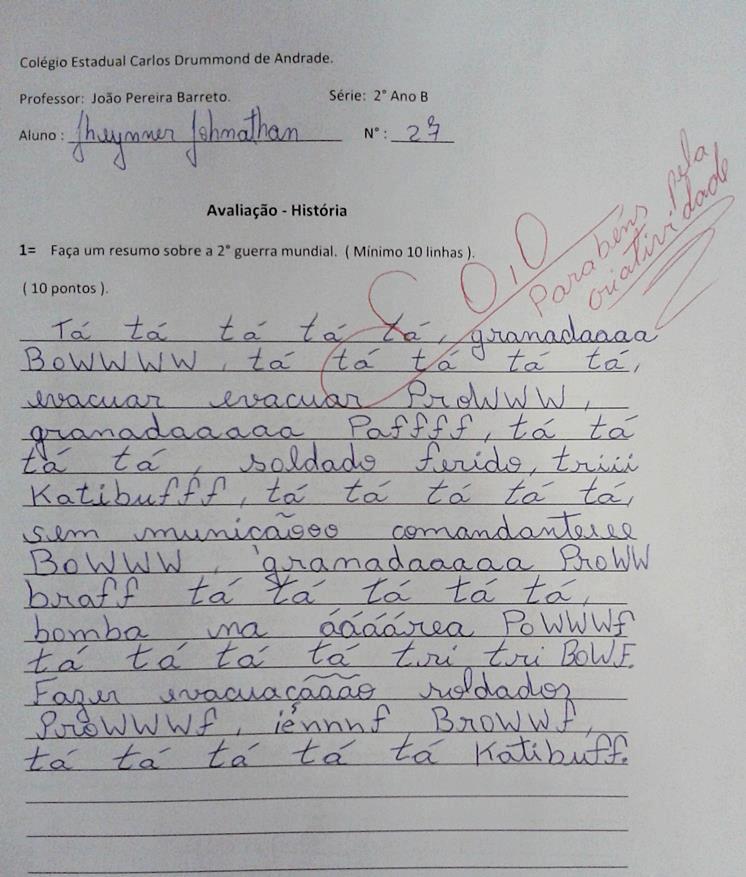 Colégio Estadual Carlos Drummond de Andrade.
Professor: João Pereira Barreto. Série: 2° Ano B
Aluno : Jheynner Johnathan N° : 27
Avaliação - História
1= Faça um resumo sobre a 2° guerra mundial. ( Mínimo 10 linhas ).
( 10 pontos ).
0,0
Parabéns pela
criatividade
Tá tá tá tá tá, granadaaaa
BoWWWW, tá tá tá tá tá,
evacuar evacuar ProWWW,
granadaaaaa Paffff, tá tá
tá tá, soldado ferido, triiii
Katibufff, tá tá tá tá tá,
sem muniçãooo comandanteeee
BoWWW, granadaaaaa ProWW
braff tá tá tá tá tá,
bomba na áááárea PoWWWf
tá tá tá tá tri tri BoWF.
Fazer evacuaçãããão soldados
ProWWWWf, iénnnf BroWWf,
tá tá tá tá tá Katibuff.